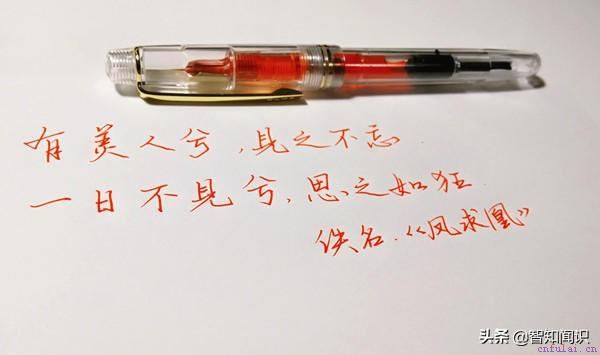 有美人兮,见之不忘
一日不见兮,思之如狂
佚名.《凤求凰》
头条@智知闻识
cnfulai.cn